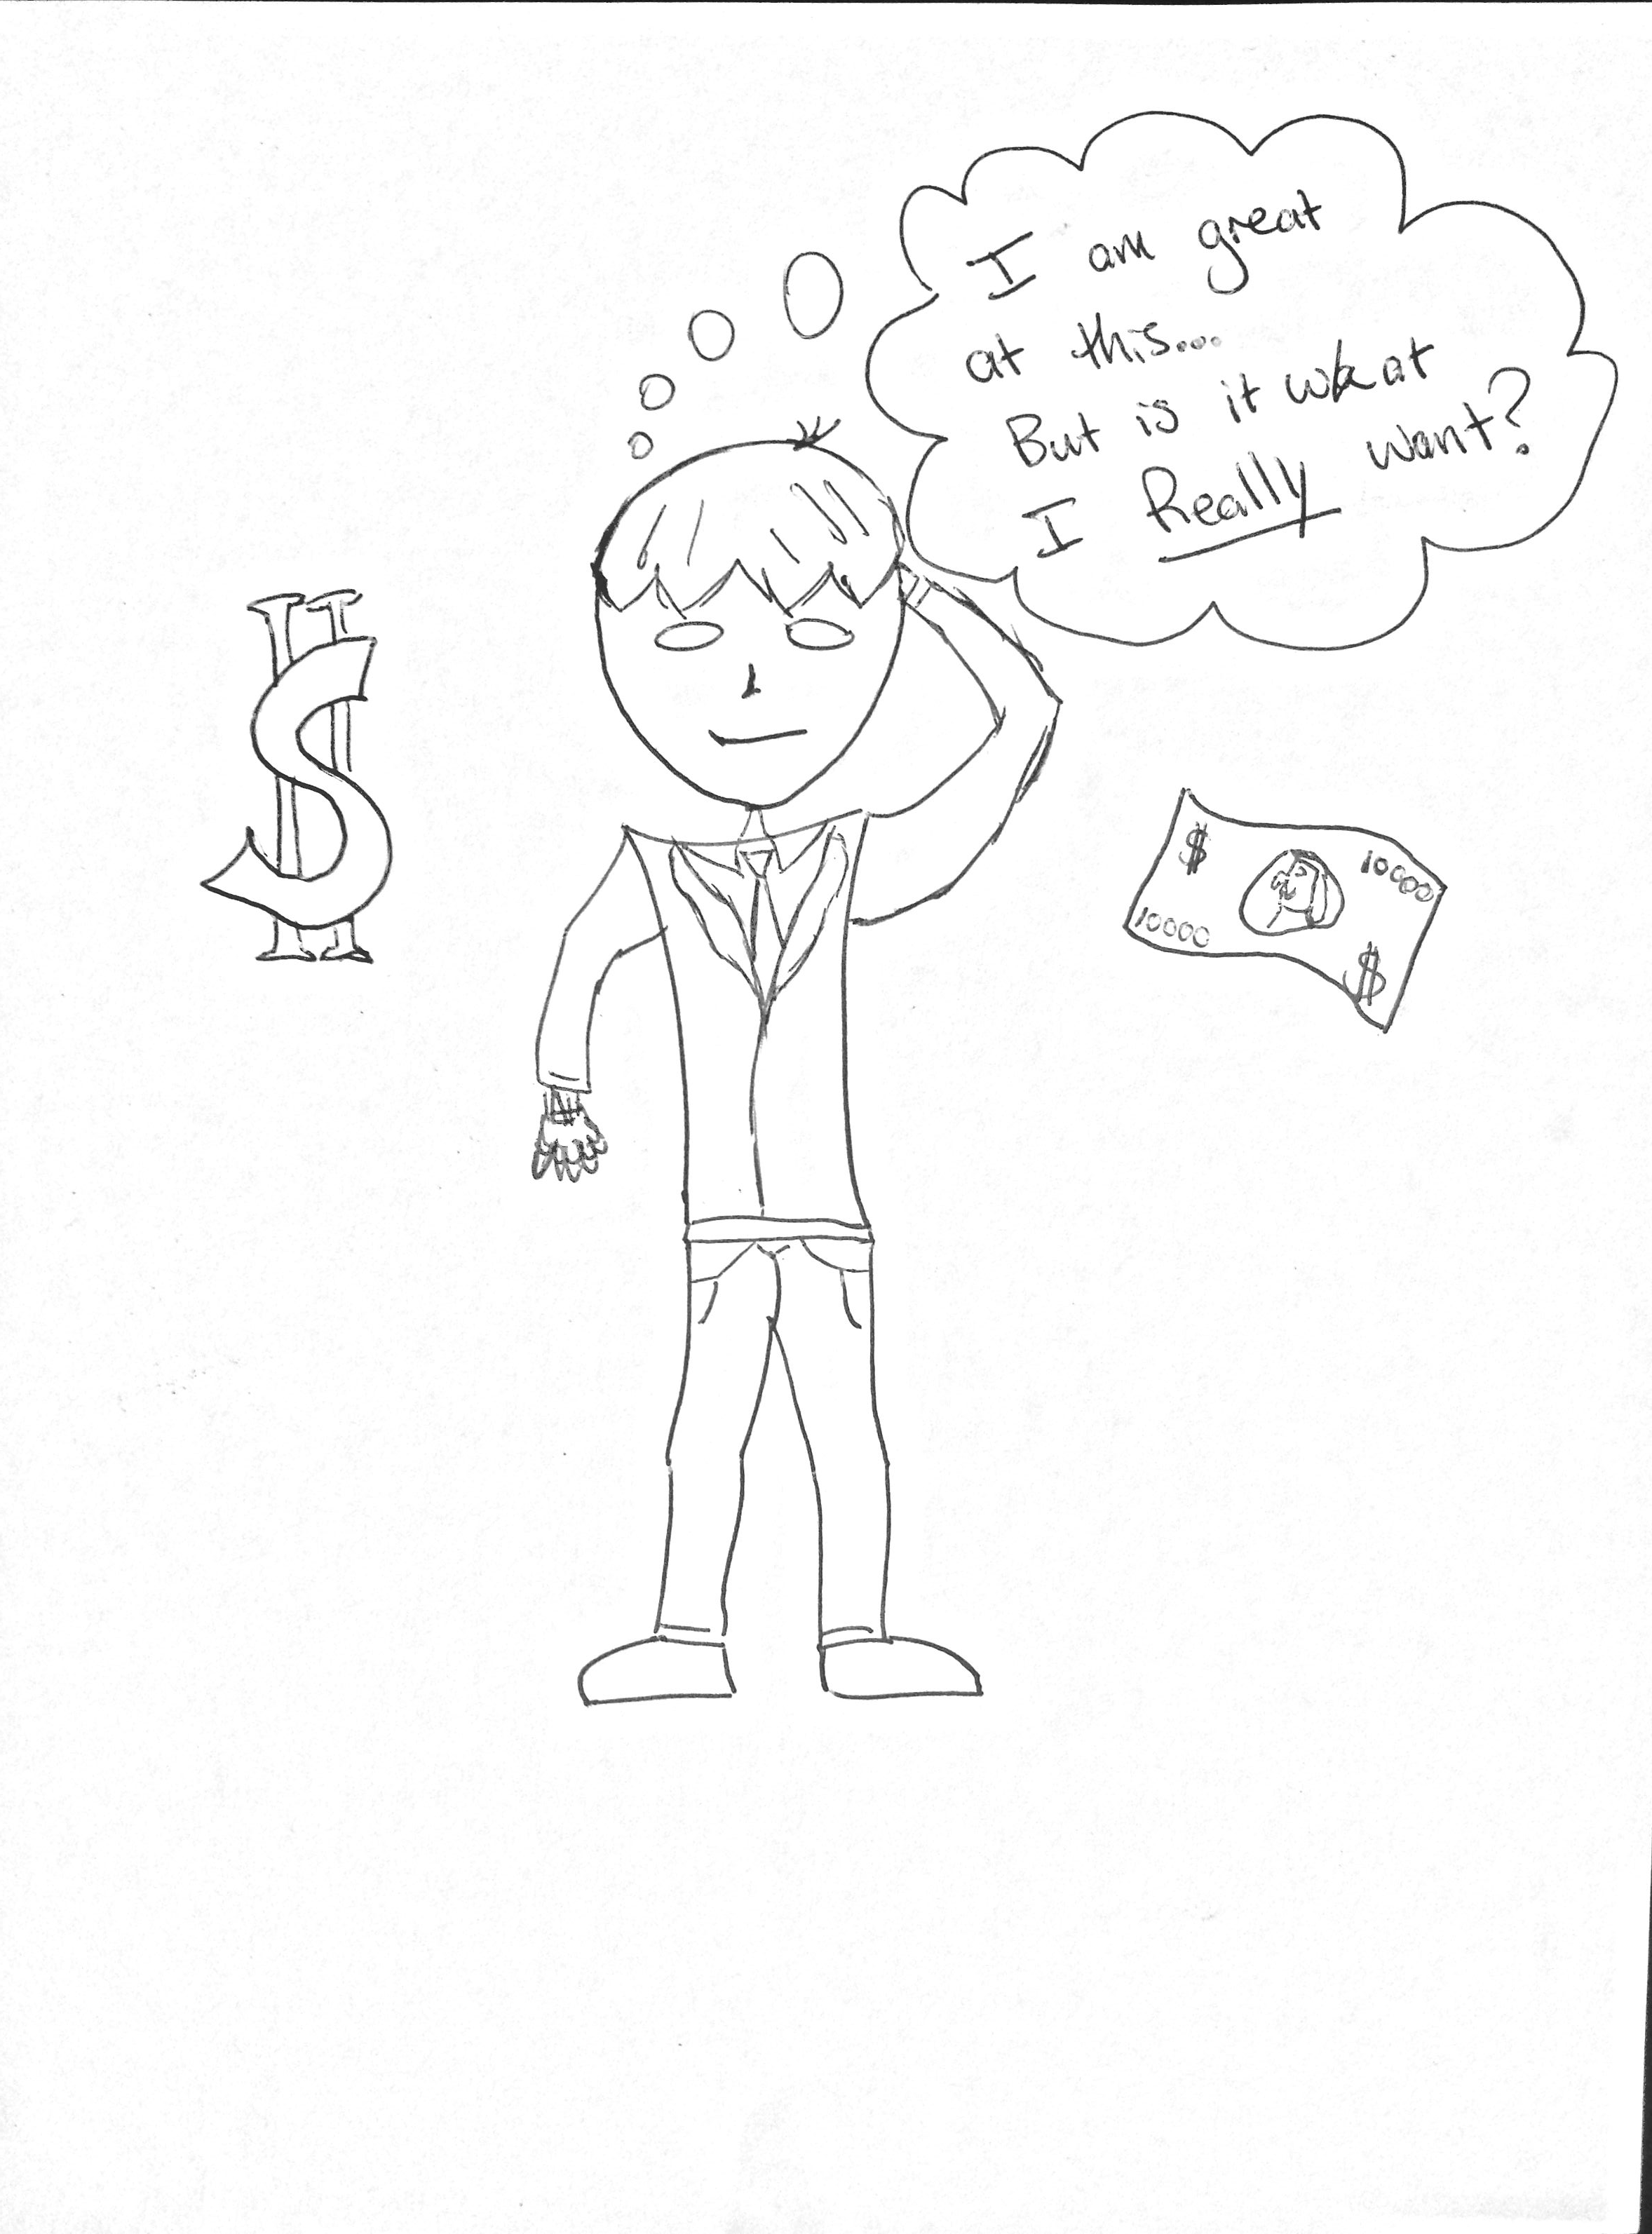 I am great
at this...
But is it what
I Really want?
$
$
10000
10000
$